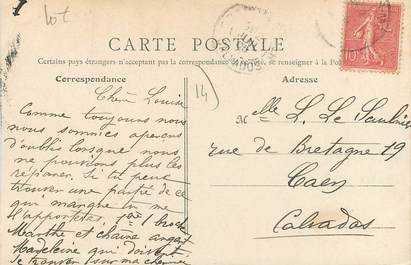 lot
CARTE POSTALE
Certains pays étrangers n'acceptant pas la correspondance se renseigner à la
Correspondance
Adresse
14
Chère Louise
Comme toujours nous
nous sommes aperçus
d'oublis lorsque nous
ne pouvions plus les
réparer. Si tu peux
trouver une partie de ce
qui manque tu me
l'apporteras. 1 broche
Marthe et chaîne argent
Madeleine qui doivent
se trouver sur ma cheminée
Melle L. Le Saulnier
rue de Bretagne 19
Caen
Calvados